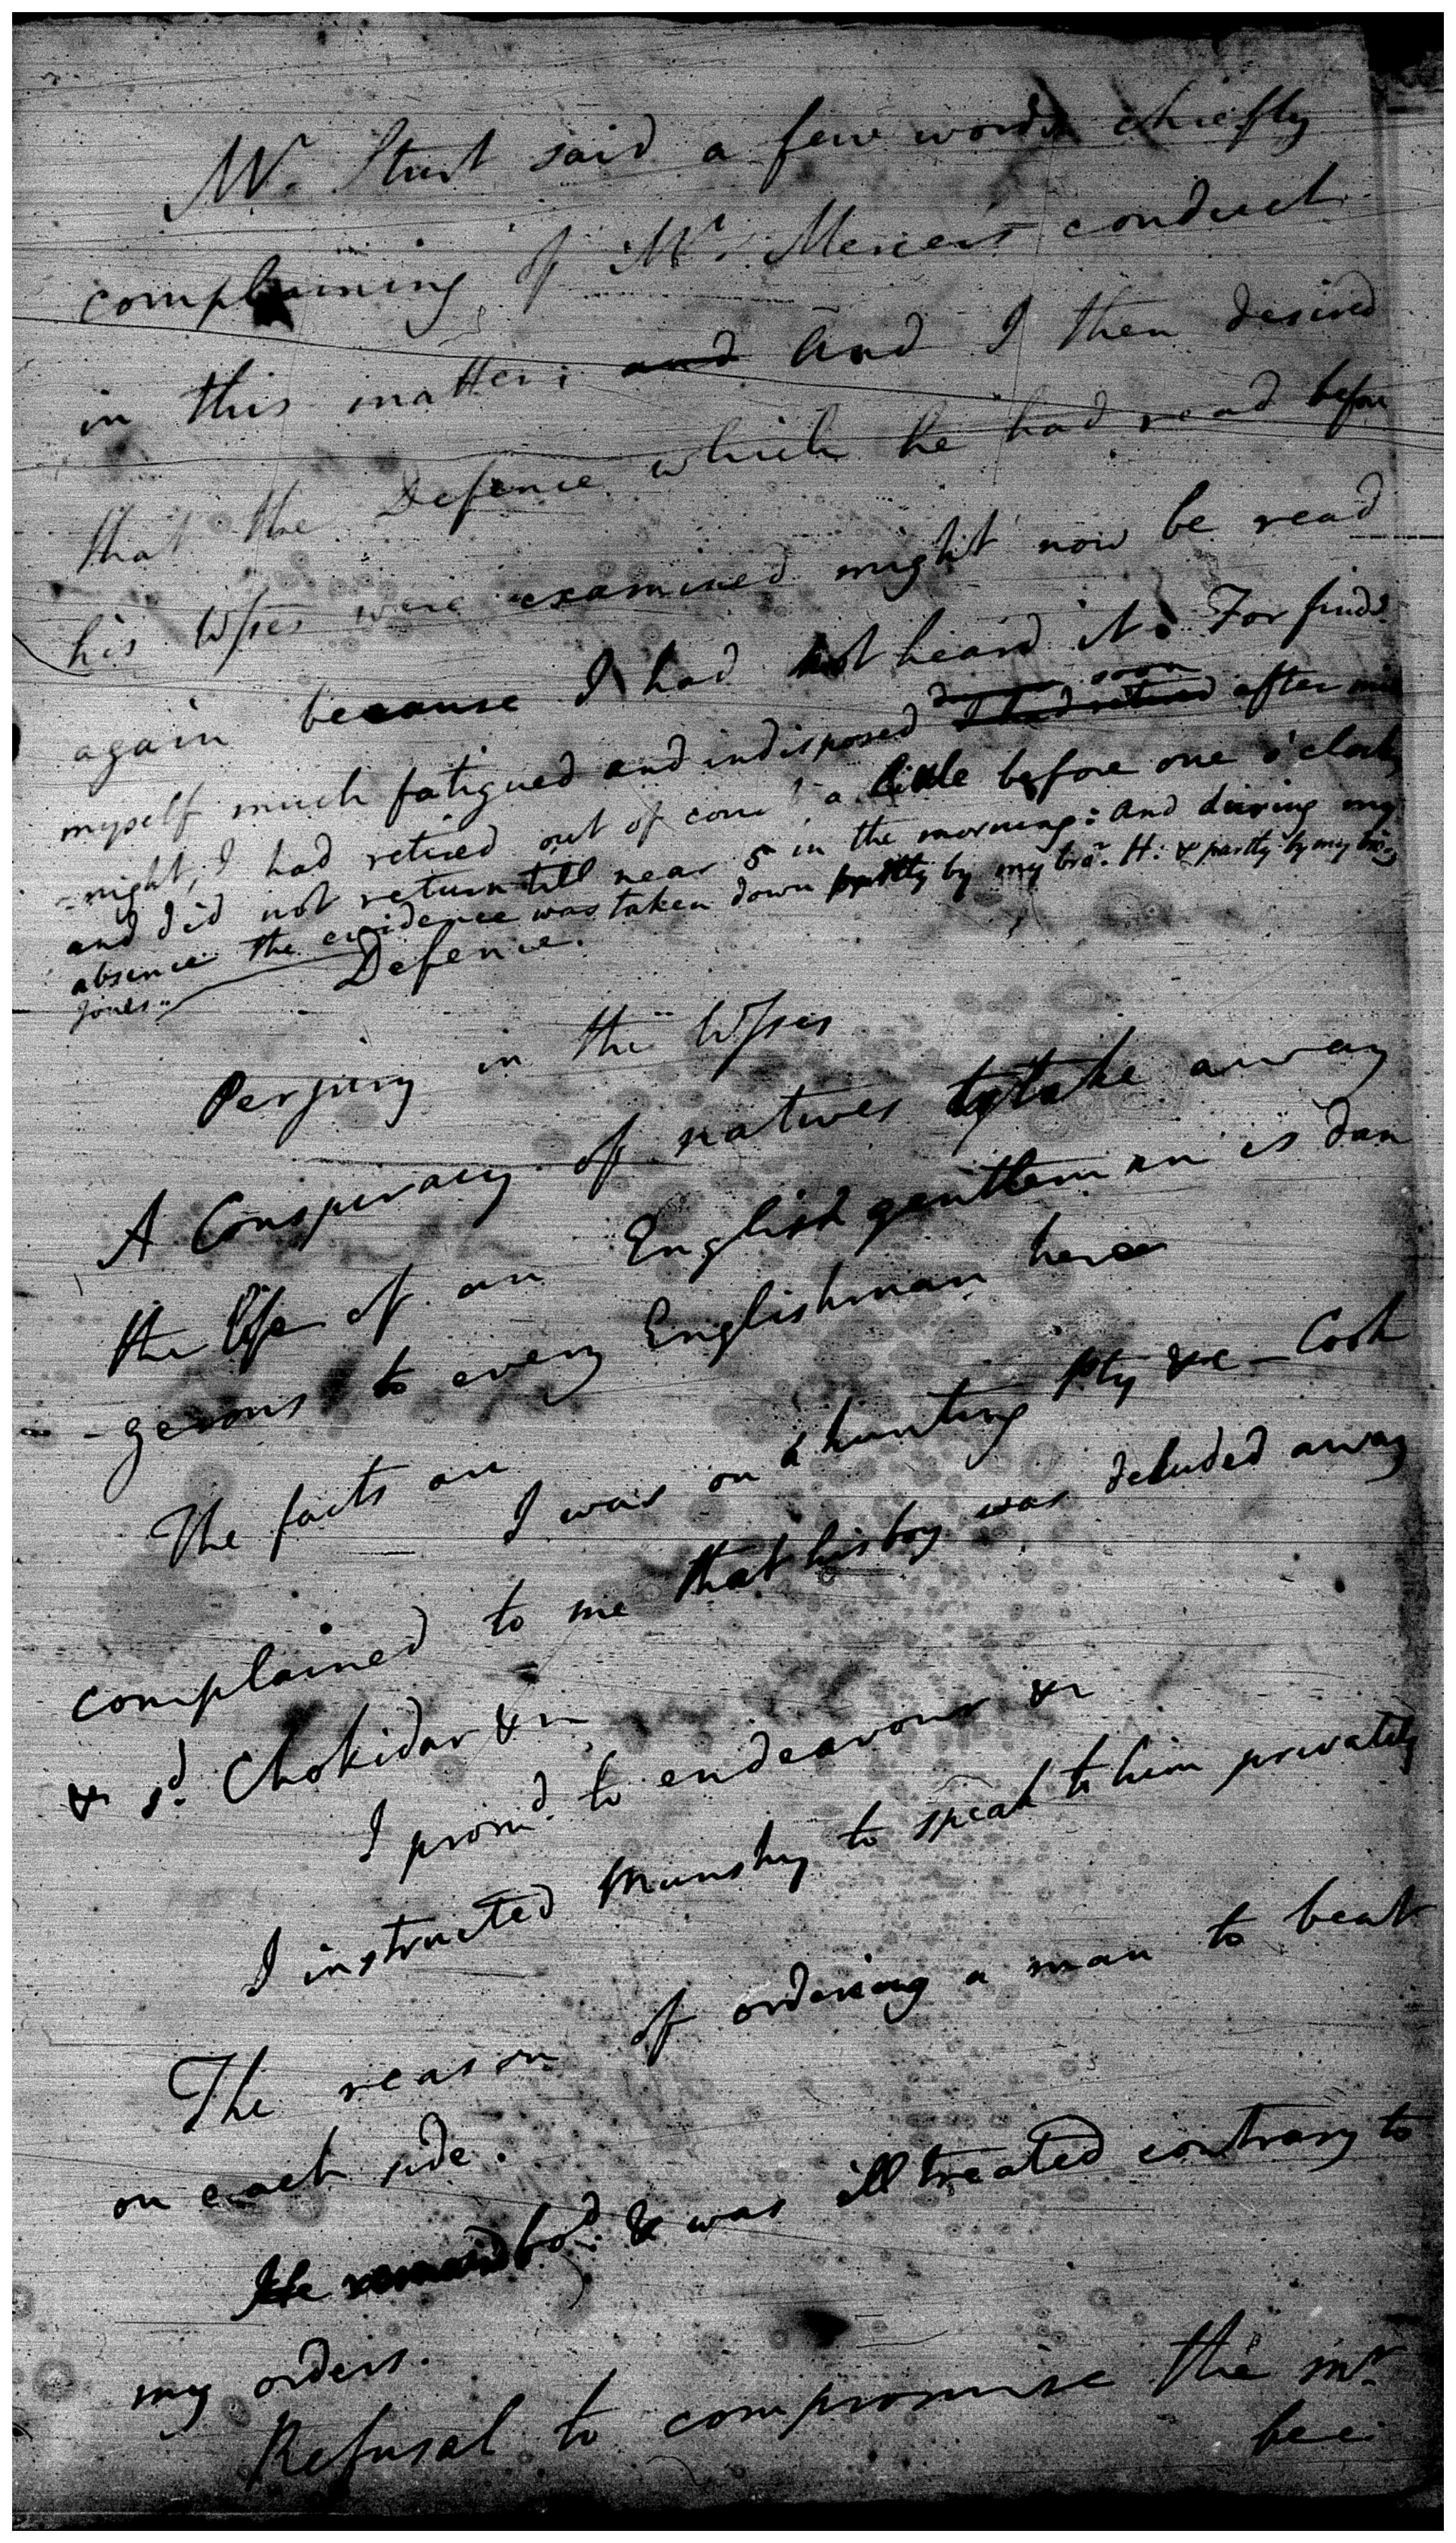 Mr. Stuart said a few words chiefly
complaining of Mr. Mercer's conduct
in this matter; and And I then desired
that the Defence which he had read before
his Wsses were examined might now be read
again because I had not heard it. For finding
myself much fatigued and indisposed soon I had retired after mid
-night, I had retired out of court a little before one o'clock
and did not return till near 5 in the morning: And during my
absence the evidence was taken down partly by my bror. H: & partly by my bror.
Jones.
Defence.
Perjury in the Wsses
A Conspiracy of natives to take away
the life of an English gentleman is dan
-gerous to every Englishman here
The facts are
I was on a hunting pty &c - Cook
complained to me that his boy was deluded away
& sd. Chokidar &c
I promd. to endeavour &c
I instructed Munshy to speak to him privately
The reason of ordering a man to beat
on each side.
He remaind bod. & was ill treated contrary to
my orders.
Refusal to compromise the mr.
bec